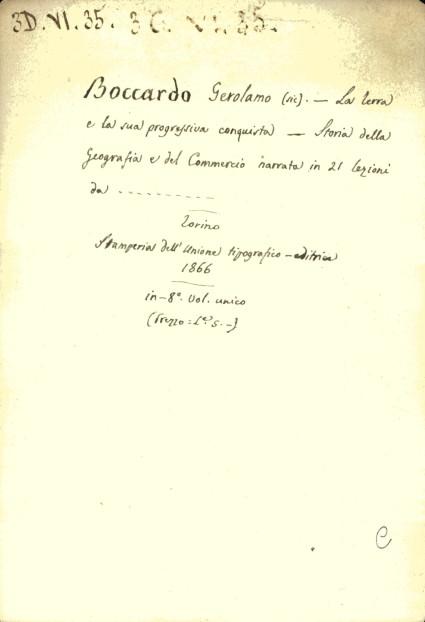 3D.VI.35. 3C.VI.35.
Boccardo Gerolamo (sic). — La terra
e la sua progressiva conquista — Storia della
Geografia e del Commercio narrata in 21 lezioni
da - - - - - - - - - -
Torino
Stamperia dell'Unione tipografico-editrice
1866
in-8°. Vol. unico
(Prezzo = Lre 5. -)
C